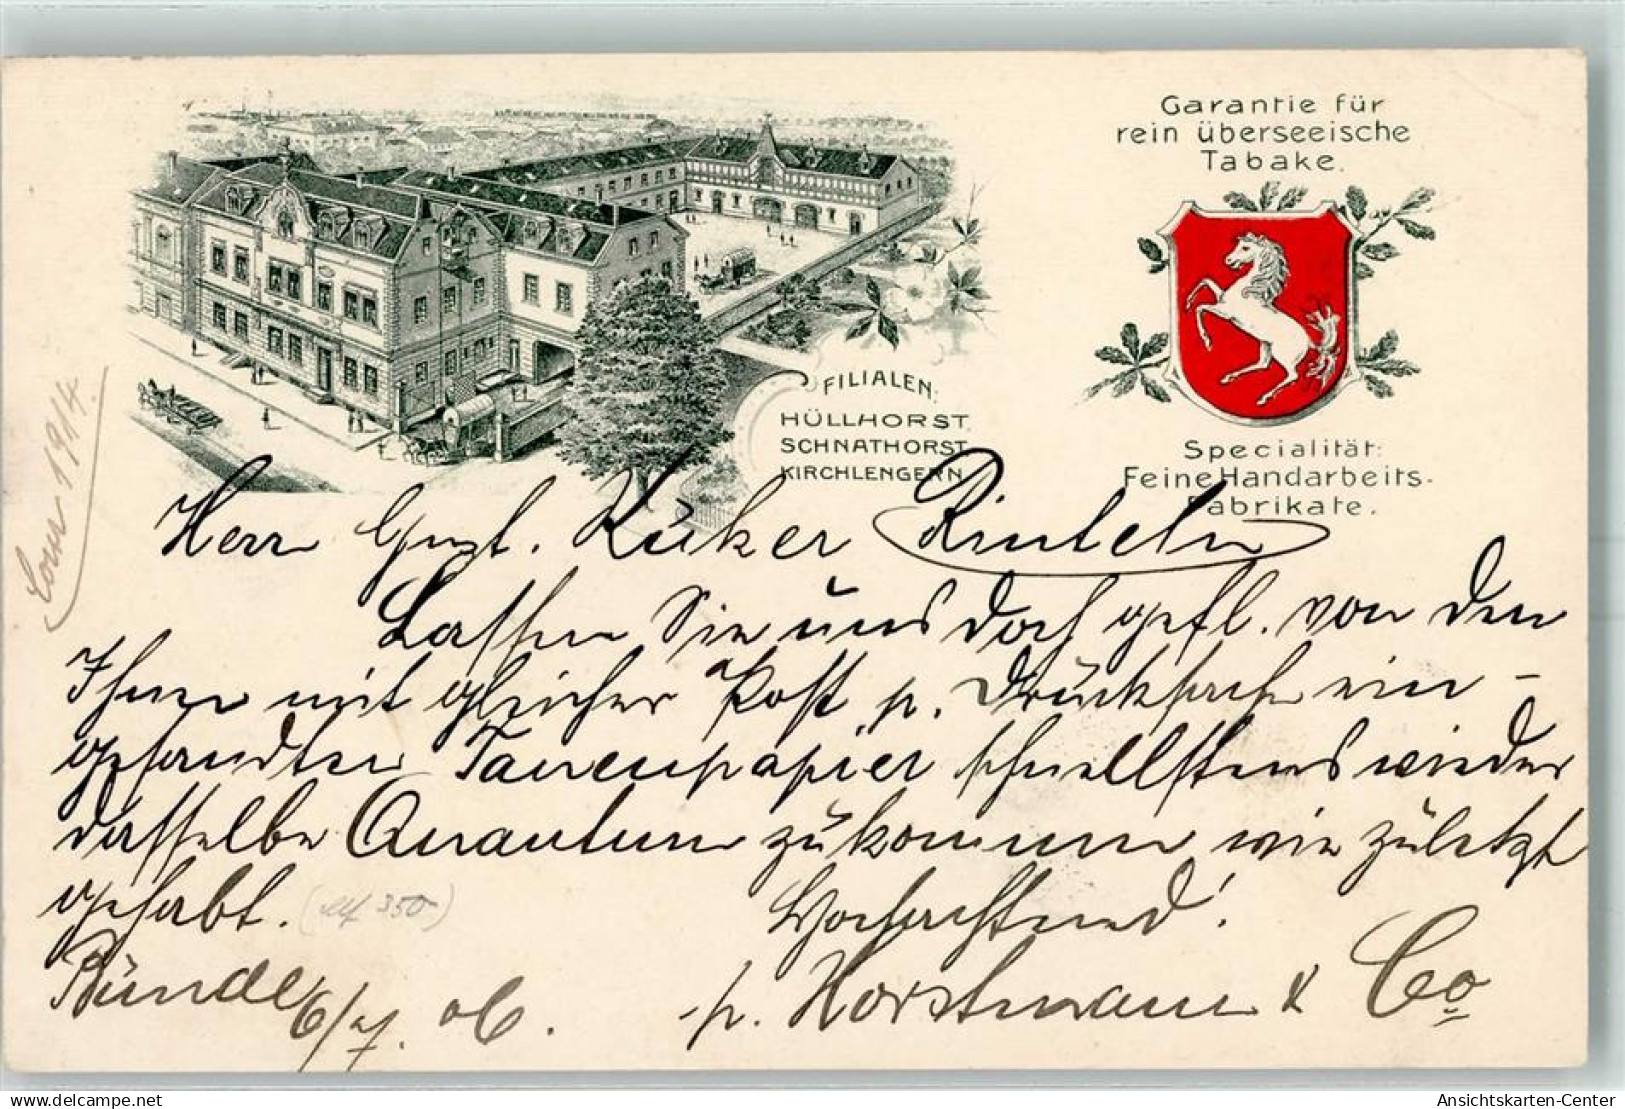 Garantie für
rein überseeische
Tabake.
FILIALEN:
HÜLLHORST.
SCHNATHORST
KIRCHLENGERN.
Specialität:
Feine Handarbeits-
Fabrikate.
Herrn Gust. Küker Rinteln
Lassen Sie uns doch gefl. von den
Ihnen mit gleicher Post p. Drücksache ein-
gesandten Tauenpapier schnellstens wieder
dasselbe Quantum zükommen wie zületzt
gehabt. 350
Hochachtend!
Bünde 6/7. 06. p. Horstmann & Co
19/4.
Ansichtskarten-Center